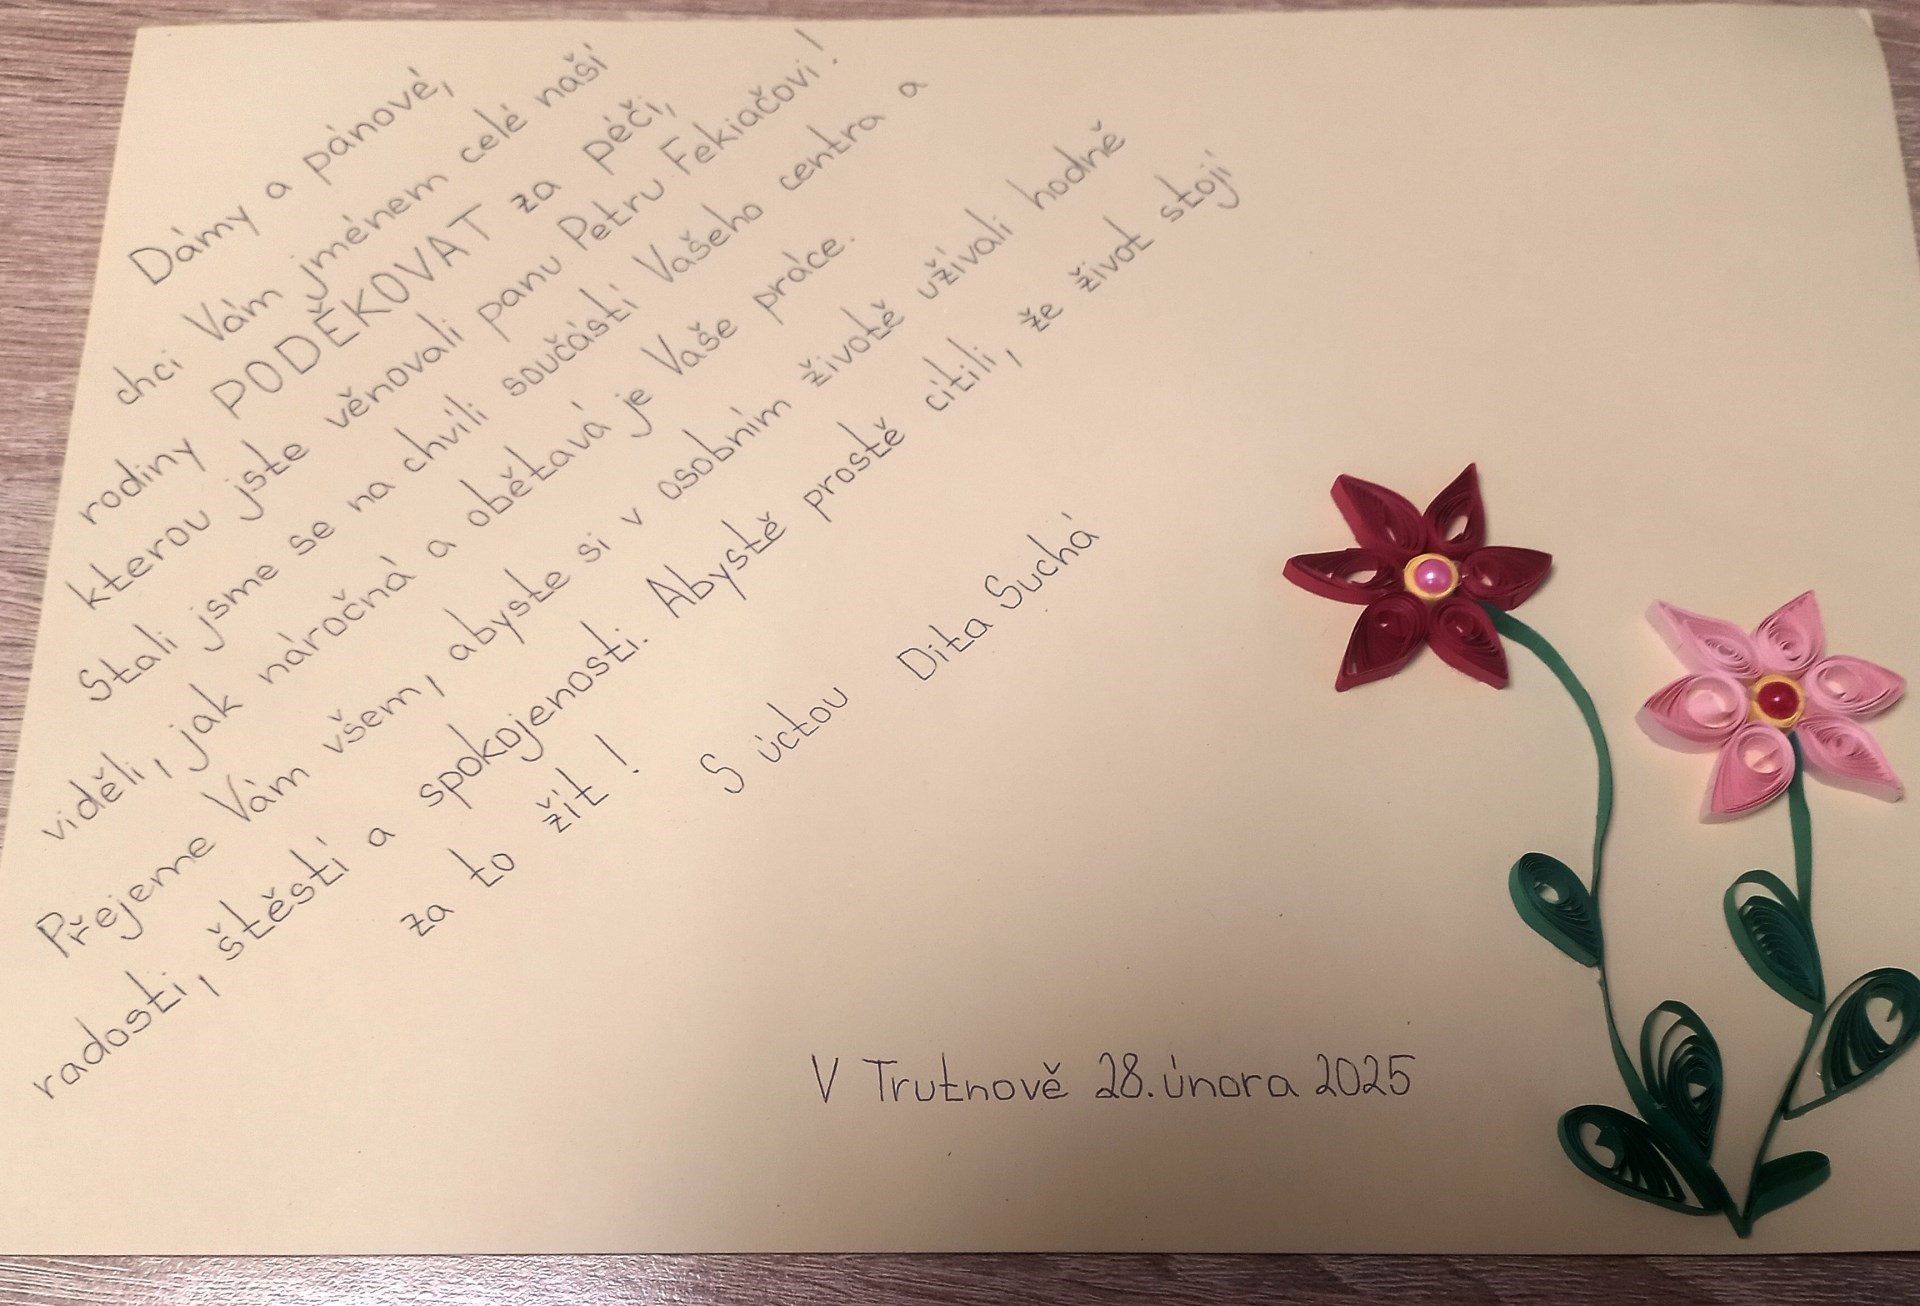 Dámy a pánové,
chci Vám jménem celé naší
rodiny PODĚKOVAT za péči,
kterou jste věnovali panu Petru Fekiačovi!
Stali jsme se na chvíli součástí Vašeho centra a
viděli, jak náročná a obětavá je Vaše práce.
Přejeme Vám všem, abyste si v osobním životě užívali hodně
radosti, štěstí a spokojenosti. Abystě prostě cítili, že život stojí
za to žít!
S úctou Dita Suchá
V Trutnově 28. února 2025